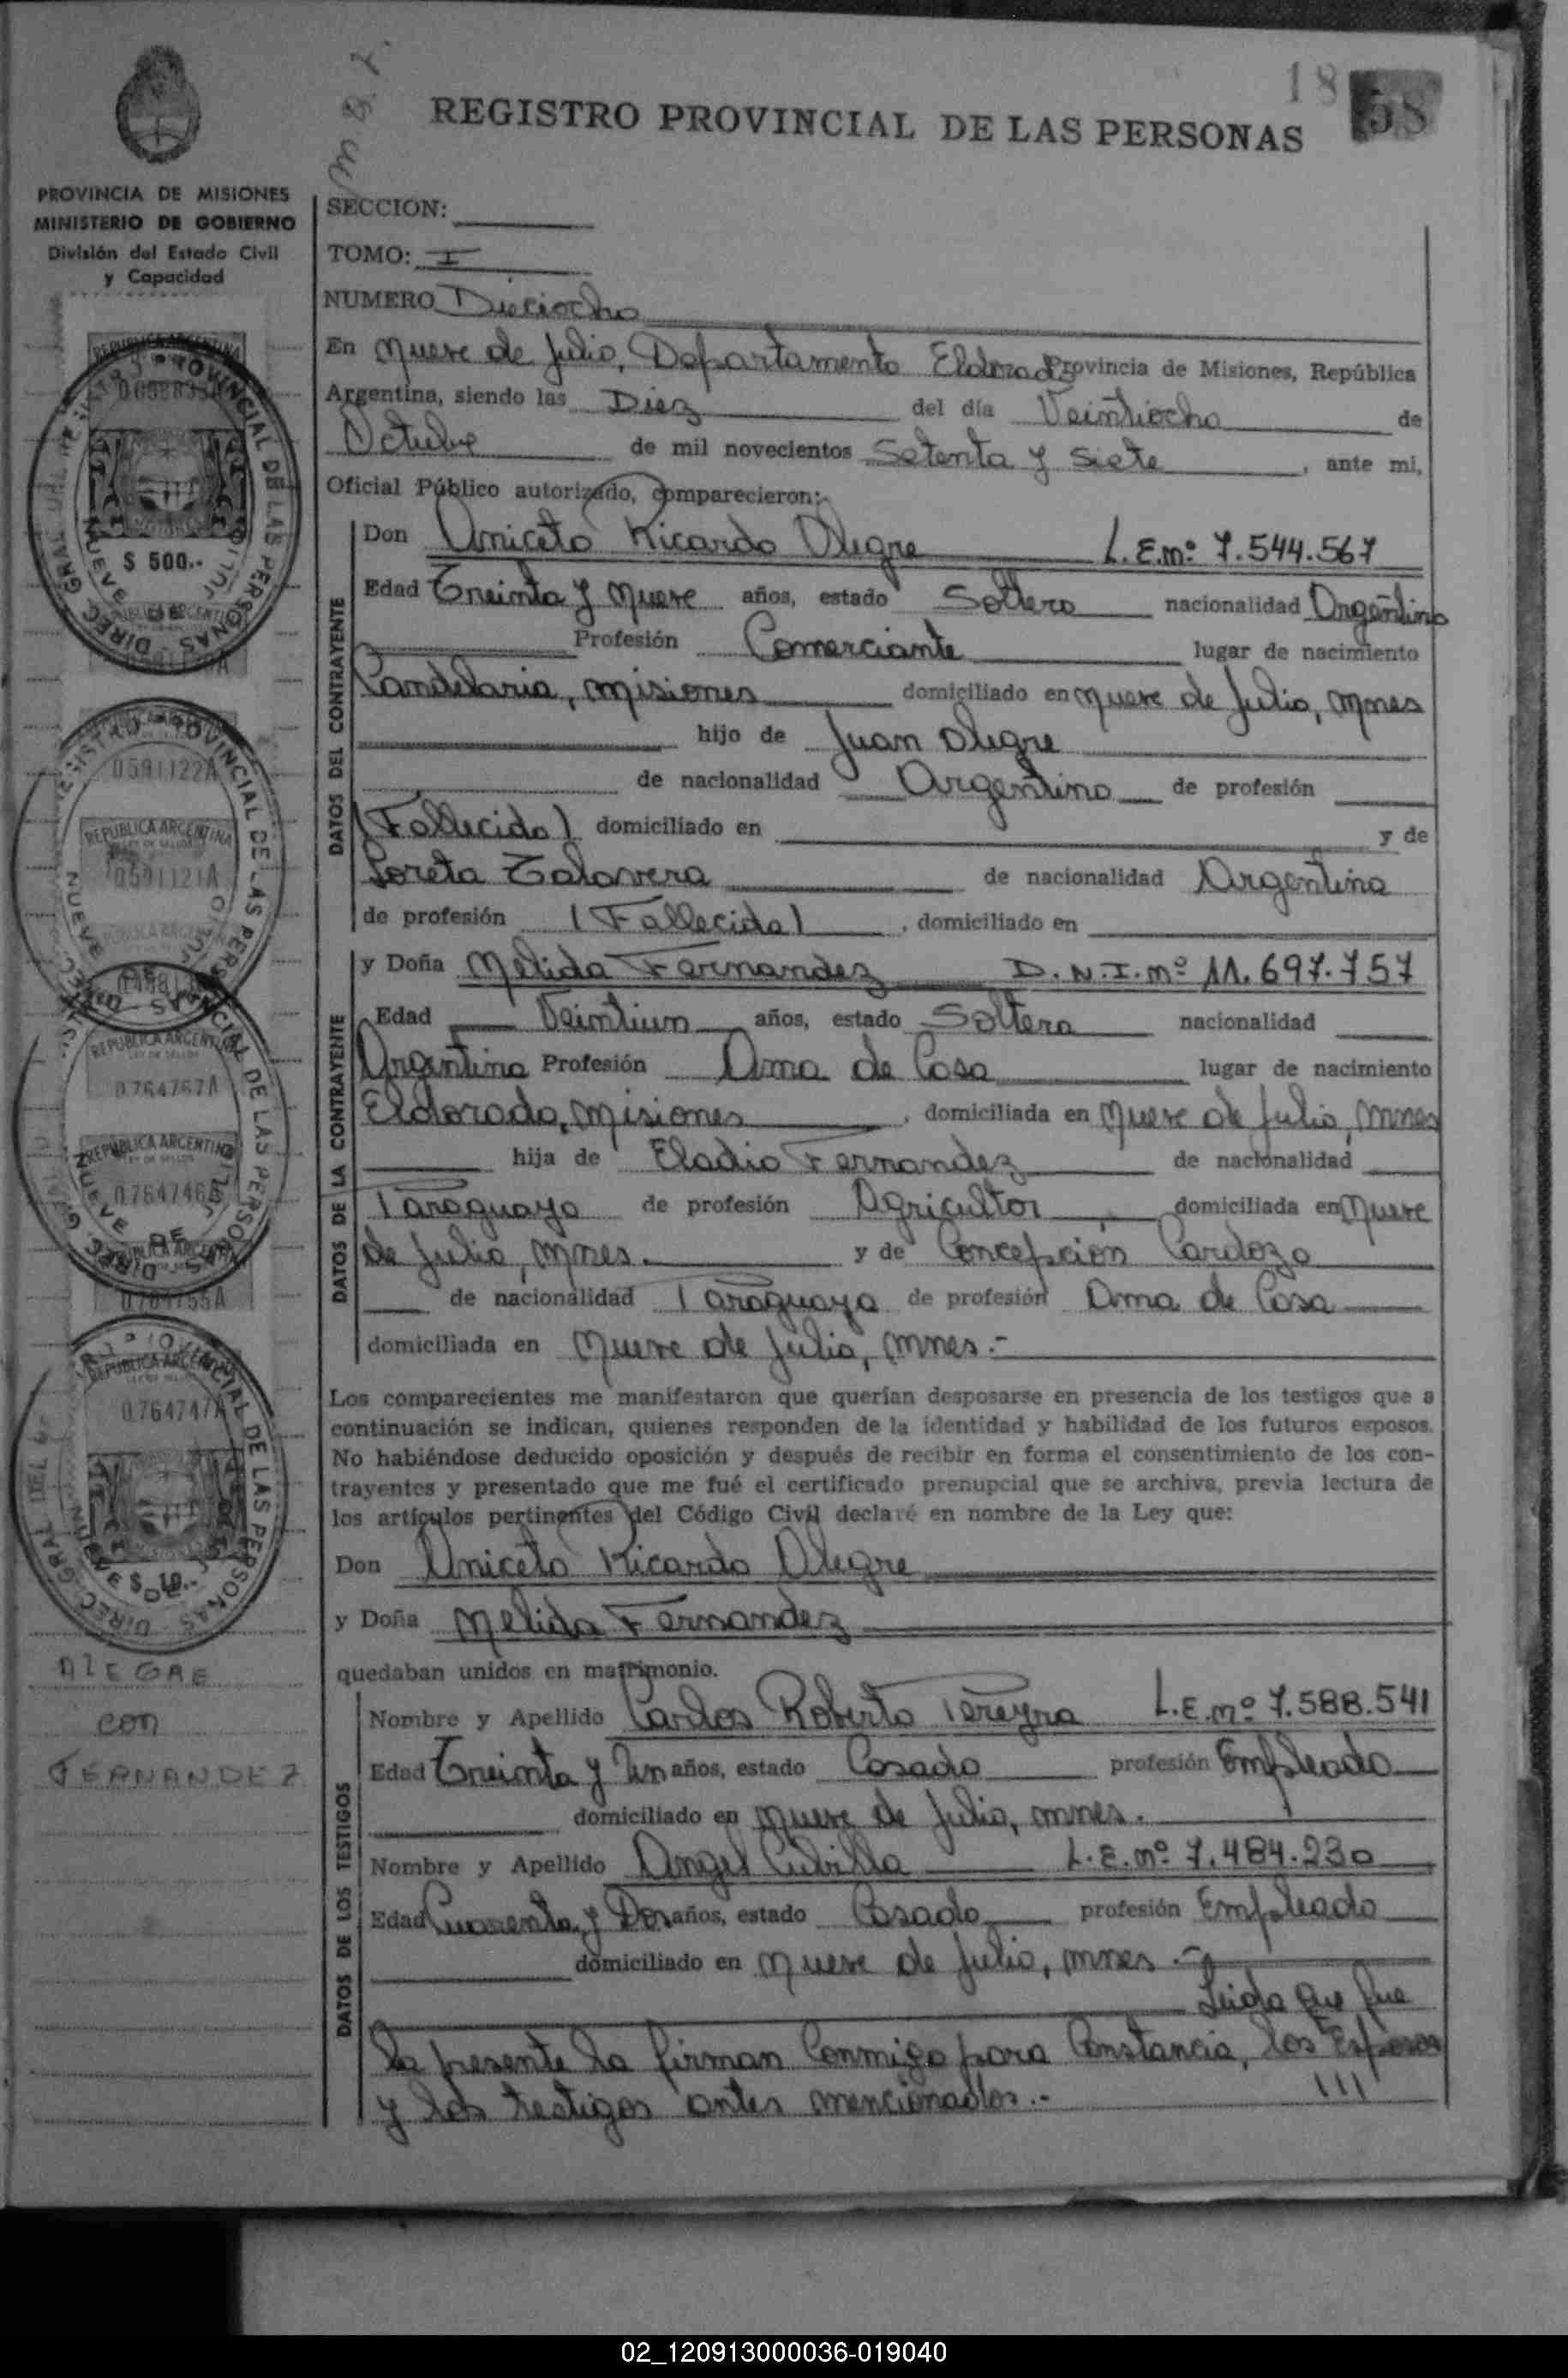 18 58
REGISTRO PROVINCIAL DE LAS PERSONAS
PROVINCIA DE MISIONES
MINISTERIO DE GOBIERNO
División del Estado Civil
y Capacidad
SECCION:
TOMO: I
NUMERO Dieciocho
En Nueve de Julio, Departamento Eldorado Provincia de Misiones, República
Argentina, siendo las Diez del día Veintiocho de
Octubre de mil novecientos Setenta y Siete, ante mi,
Oficial Público autorizado, comparecieron:
DATOS DEL CONTRAYENTE
Don Aniceto Ricardo Alegre L.E.Nº 7.544.567
Edad Treinta y Nueve años, estado Soltero nacionalidad Argentino
Profesión Comerciante lugar de nacimiento
Candelaria, Misiones domiciliado en Nueve de Julio, Mnes
hijo de Juan Alegre
de nacionalidad Argentino de profesión
(Fallecido) domiciliado en y de
Loreta Talavera de nacionalidad Argentina
de profesión (Fallecida), domiciliado en
DATOS DE LA CONTRAYENTE
y Doña Nelida Fernandez D.N.I.Nº 11.697.757
Edad Veintiun años, estado Soltera nacionalidad
Argentina Profesión Ama de Casa lugar de nacimiento
Eldorado, Misiones, domiciliada en Nueve de Julio, Mnes
hija de Eladio Fernandez de nacionalidad
Paraguayo de profesión Agricultor domiciliada en Nueve
de Julio, Mnes. y de Concepción Cardozo
de nacionalidad Paraguaya de profesión Ama de Casa
domiciliada en Nueve de Julio, Mnes.-
Los comparecientes me manifestaron que querían desposarse en presencia de los testigos que a
continuación se indican, quienes responden de la identidad y habilidad de los futuros esposos.
No habiéndose deducido oposición y después de recibir en forma el consentimiento de los con-
trayentes y presentado que me fué el certificado prenupcial que se archiva, previa lectura de
los artículos pertinentes del Código Civil declaré en nombre de la Ley que:
Don Aniceto Ricardo Alegre
y Doña Nelida Fernandez
quedaban unidos en matrimonio.
ALEGRE
con
FERNANDEZ
DATOS DE LOS TESTIGOS
Nombre y Apellido Carlos Roberto Pereyra L.E.Nº 7.588.541
Edad Treinta y Un años, estado Casado profesión Empleado
domiciliado en Nueve de Julio, Mnes.
Nombre y Apellido Angel Cubilla L.E.Nº 7.484.230
Edad Cuarenta y Dos años, estado Casado profesión Empleado
domiciliado en Nueve de Julio, Mnes.-
Leida que fue
la presente la firman Conmigo para Constancia, los Esposos
y los testigos antes mencionados.- ///
REPUBLICA ARGENTINA
$ 500.-
0591122A
REPUBLICA ARGENTINA
0591121A
REPUBLICA ARGENTINA
0764767A
REPUBLICA ARGENTINA
0764746
REPUBLICA ARGENTINA
0764747A
$ 10.-
REGISTRO PROVINCIAL DE LAS PERSONAS
NUEVE DE JULIO
02_120913000036-019040